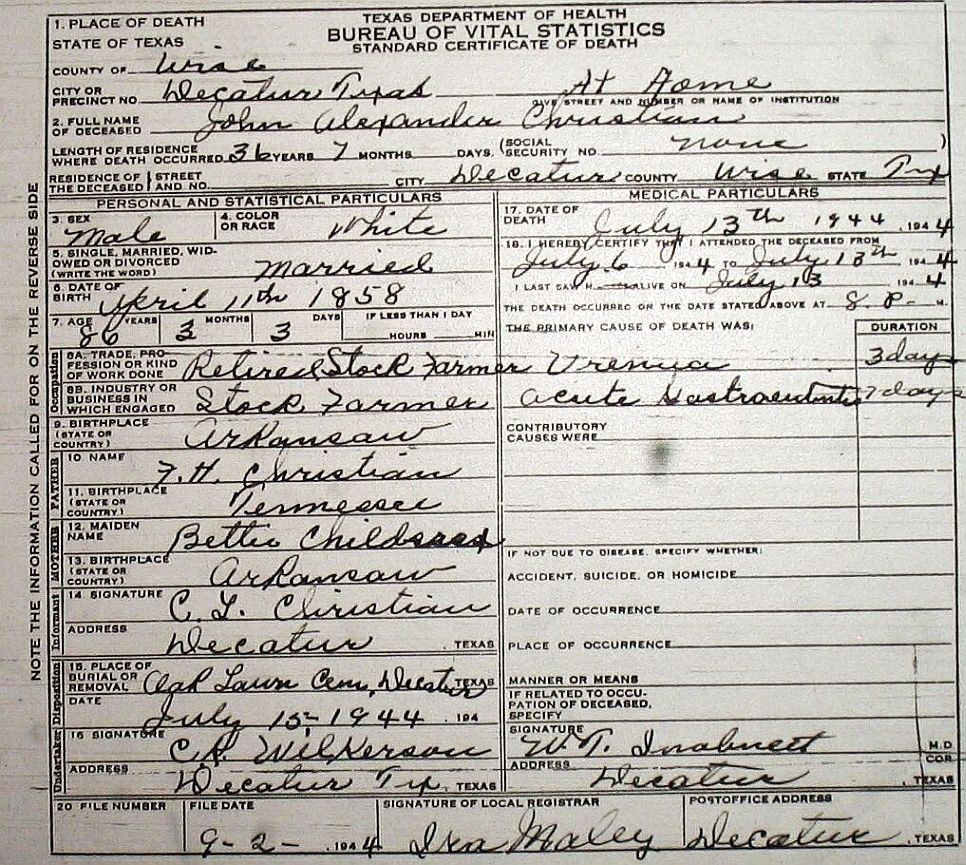 TEXAS DEPARTMENT OF HEALTH
BUREAU OF VITAL STATISTICS
STANDARD CERTIFICATE OF DEATH
1. PLACE OF DEATH
STATE OF TEXAS
COUNTY OF Wise
CITY OR PRECINCT NO. Decatur Texas At Home
GIVE STREET AND NUMBER OR NAME OF INSTITUTION
2. FULL NAME OF DECEASED John Alexander Christian
LENGTH OF RESIDENCE WHERE DEATH OCCURRED 36 YEARS 7 MONTHS DAYS. (SOCIAL SECURITY NO. None )
RESIDENCE OF THE DECEASED STREET AND NO. CITY Decatur COUNTY Wise STATE Tex
NOTE THE INFORMATION CALLED FOR ON THE REVERSE SIDE
PERSONAL AND STATISTICAL PARTICULARS
3. SEX Male 4. COLOR OR RACE White
5. SINGLE, MARRIED, WIDOWED OR DIVORCED (WRITE THE WORD) Married
6. DATE OF BIRTH April 11th 1858
7. AGE 86 YEARS 3 MONTHS 3 DAYS IF LESS THAN 1 DAY HOURS MIN
Occupation
8A. TRADE, PROFESSION OR KIND OF WORK DONE Retired Stock Farmer
8B. INDUSTRY OR BUSINESS IN WHICH ENGAGED Stock Farmer
9. BIRTHPLACE (STATE OR COUNTRY) Arkansaw
FATHER
10 NAME F. H. Christian
11. BIRTHPLACE (STATE OR COUNTRY) Tennessee
MOTHER
12. MAIDEN NAME Bettie
13. BIRTHPLACE (STATE OR COUNTRY) Arkansaw
Informant
14 SIGNATURE C. L. Christian
ADDRESS Decatur , TEXAS
Disposition
15. PLACE OF BURIAL OR REMOVAL Oak Lawn Cem, Decatur TEXAS
DATE July 15 - 1944 , 194
Undertaker
16 SIGNATURE C. R. Wilkerson
ADDRESS Decatur Tex , TEXAS
MEDICAL PARTICULARS
17. DATE OF DEATH July 13th 1944 , 1944
18. I HEREBY CERTIFY THAT I ATTENDED THE DECEASED FROM
July 6 1944 TO July 13th , 1944
I LAST SAW H ALIVE ON July 13 1944
THE DEATH OCCURRED ON THE DATE STATED ABOVE AT 8 P - M.
THE PRIMARY CAUSE OF DEATH WAS: DURATION
Uremia 3 days
Acute Gastroenteritis 7 days
CONTRIBUTORY CAUSES WERE
IF NOT DUE TO DISEASE, SPECIFY WHETHER:
ACCIDENT, SUICIDE, OR HOMICIDE
DATE OF OCCURRENCE
PLACE OF OCCURRENCE
MANNER OR MEANS
IF RELATED TO OCCUPATION OF DECEASED, SPECIFY
SIGNATURE W. T. Inabnett M.D. COR.
ADDRESS Decatur , TEXAS
20 FILE NUMBER FILE DATE 9-2- , 1944 SIGNATURE OF LOCAL REGISTRAR Ira Maley POSTOFFICE ADDRESS Decatur , TEXAS